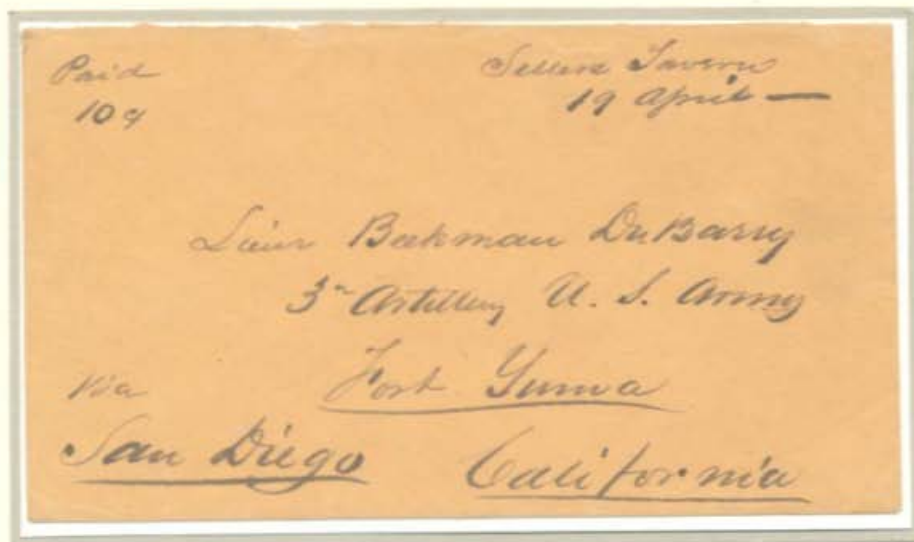 Paid
10 ¢
Sellers Tavern
19 April —
Lieut Beekman Du Barry
3rd Artillery U. S. Army
Fort Yuma
Via
San Diego California